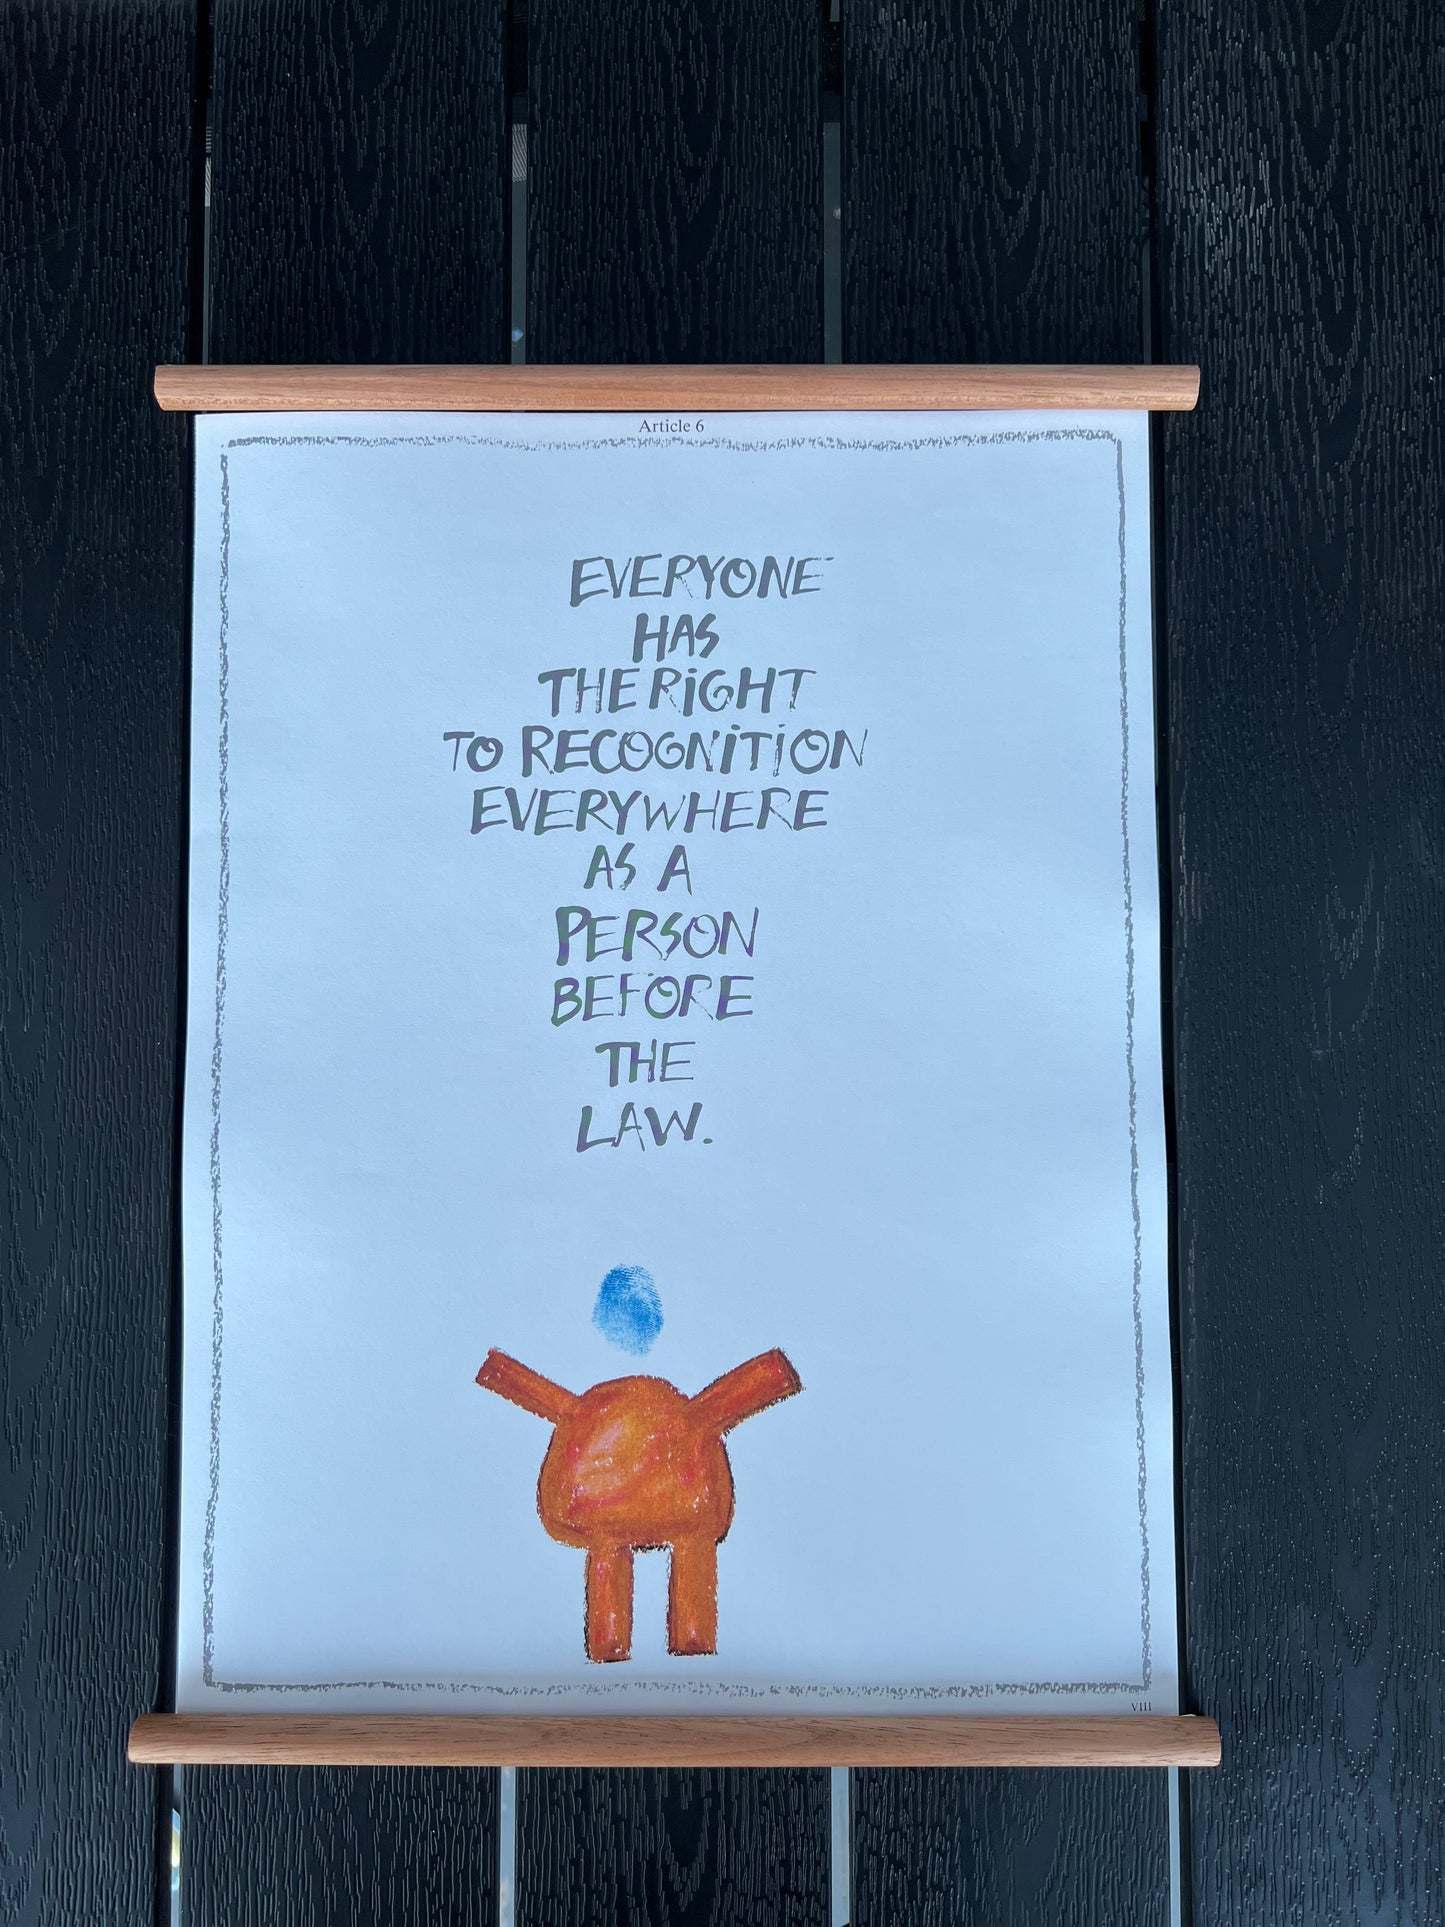 Article 6
EVERYONE
HAS
THE RiGHT
TO RECOGNiTiON
EVERYWHERE
AS A
PERSON
BEFORE
THE
LAW.
VIII